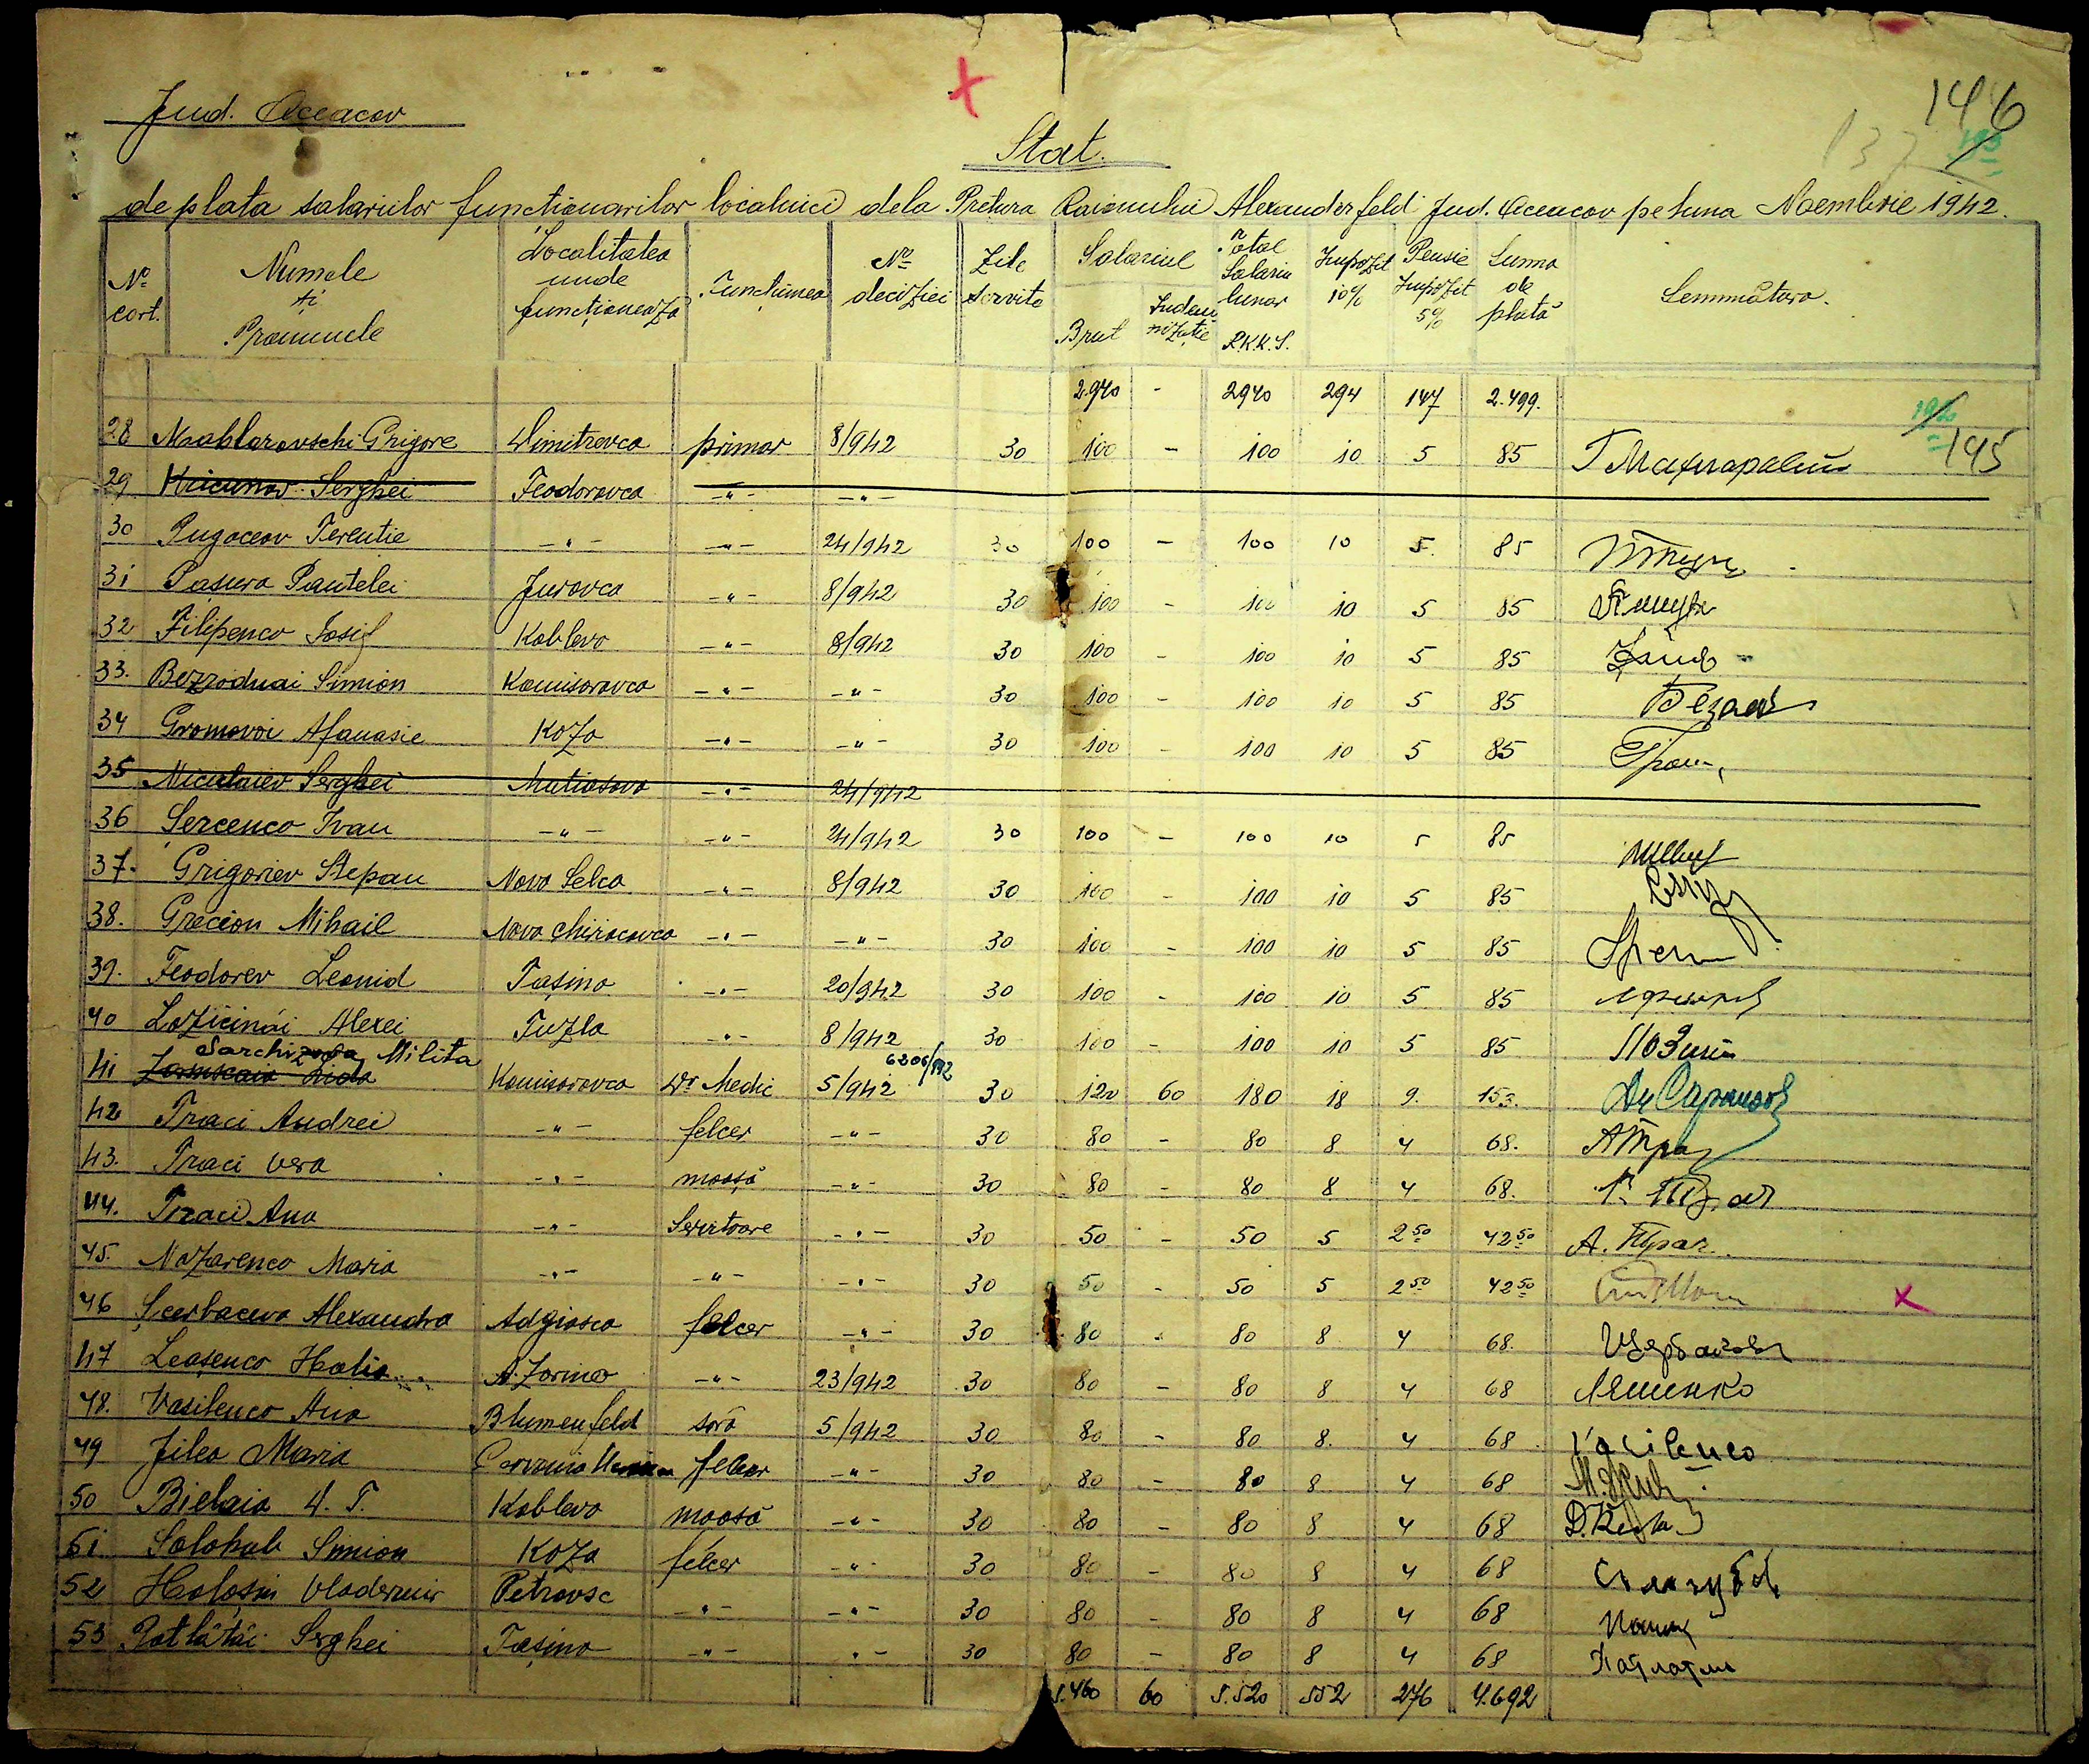 Jud. Oceacov
146
137
Stat.
de plata salariilor functionarilor localnici dela Pretura Raionului Alexanderfeld Jud. Oceacov pe luna Noembrie 1942.
No cort. Numele și Pronumele Localitatea unde funcționează Funcțiunea No deciziei Zile servite Salariul Brut Indemnizație Total Salariu lunar R.K.K.S. Impozit 10% Pensie Impozit 5% Suma de plată Semnătura.
2.940 - 2940 294 147 2.499.
195
28 Grigore Dimitrovca primar 8/942 30 100 - 100 10 5 85
29 Serghei Feodorovca -"- -"-
30 Pugaceov Terentie -"- -"- 24/942 30 100 - 100 10 5. 85
31 Pasura Pantelei Jurovca -"- 8/942 30 100 - 100 10 5 85
32 Filipenco Iosif Koblevo -"- 8/942 30 100 - 100 10 5 85
33. Bezrodnai Simion Komisarovca -"- -"- 30 100 - 100 10 5 85
34 Gromovoi Afanasie Koza -"- -"- 30 100 - 100 10 5 85
35 Niculaiev Serghei Mutiosova -"- 24/942
36 Șercenco Ivan -"- -"- 24/942 30 100 - 100 10 5 85
37. Grigoriev Stepan Novo Selca -"- 8/942 30 100 - 100 10 5 85
38. Grecion Mihail Novo Chiriacovca -"- -"- 30 100 - 100 10 5 85
39. Feodorev Leonid Tașino -"- 20/942 30 100 - 100 10 5 85
40 Lozicinâi Alexei Tuzla -"- 8/942 30 100 - 100 10 5 85
Milita 6306/942
41 Lida Komisarovca Dr Medic 5/942 30 120 60 180 18 9. 153.
42 Traci Andrei -"- felcer -"- 30 80 - 80 8 4 68.
43. Traci Vera -"- moașă -"- 30 80 - 80 8 4 68.
44. Traci Ana -"- Servitoare -"- 30 50 - 50 5 2 50 42 50 А. Трач.
45. Nazarenco Maria -"- -"- -"- 30 50 - 50 5 2 50 42 50
46 Șcerbacova Alexandra Adgiasca felcer -"- 30 80 - 80 8 4 68. Щербакова
47 Leașenco Halia A. Zarina -"- 23/942 30 80 - 80 8 4 68 Ляшенко
48. Vasilenco Ana Blumenfeld soră 5/942 30 80 - 80 8. 4 68 Vacilenco
49 Jilea Maria felcer -"- 30 80 - 80 8 4 68
50 Bielaia D. T. Koblevo moașă -"- 30 80 - 80 8 4 68
51 Solohub Simion Koza felcer -"- 30 80 - 80 8 4 68
52 Holoșin Vladermir Petrovsc -"- -"- 30 80 - 80 8 4 68
53 Patlâtâi Serghei Tașino -"- -"- 30 80 - 80 8 4 68
5.460 60 5.520 552 276 4.692